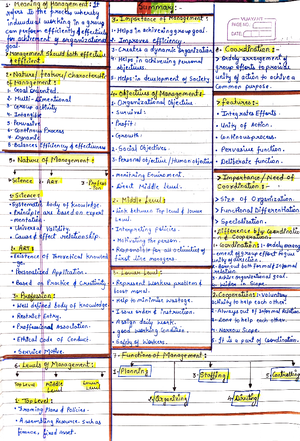 Summary:
1- Meaning of Management:
refers to the process whereby
individual working in a group
can perform efficiently & effectively
for achievement of organizational
goal.
Management should both effective
& efficient.
2- Nature/feature/characteristic
of Management:
Goal oriented
Multi-dimentional
Group activity
Intangible
Pervasive
Continuous Process
Dynamic
Balances Efficiency & effectiveness
5- Nature of Management:
1-Science 2- Art 3- Profession
1- Science:
Systematic body of knowledge.
Principle are based on experi
mentation.
Universal Validity.
Cause & effect relationship.
2- Art:
Existence of Theoretical knowled-
ge.
Personalised Application.
Based on Practice & Creativity.
3- Profession:
Well defined Body of knowledge.
Restrict Entry.
Professional Association.
Ethical Code of Conduct.
Service Motive.
6- Levels of Management:
Top Level Middle Level Lower Level
1- Top Level:
Framing Plans & Policies.
Assembling Resource such as
finance, fixed asset.
3- Importance of Management:
Helps in achieving group goal.
Improves efficiency.
Creates a dynamic organization
Helps in achieving personal
objectives.
Helps in development of Society
4- Objectives of Management:
1- Organizational Objective
Survival:
Profit:
Growth:
2- Social Objectives:
3- Personal Objective/Human objective
Direct Middle Level.
2- Middle Level:
Link between Top level & lower
level.
Interpreting Policies.
Motivating the person.
Responsible for all activities of
first line managers.
3- Lower Level:
Represent Workers problem &
boost moral.
Help to minimise wastage.
Issue order & instruction.
Assign daily work.
good working condition.
Safety of Workers.
7- Functions of Management:
1-Planning 3-Staffing 5-Controlling
2-Organizing 4-Directing
PAGE NO.
DATE
8- Coordination:-
Orderly arrangement of
group efforts to provide
unity of action to achieve a
common purpose.
Features:-
Integrates Efforts.
Unity of Action.
Continuous process.
Pervasive function.
Deliberate function.
Importance/Need of
Coordination:-
Size of Organization.
Functional Differentiation
Specialisation.
Difference b/w Coordinatio
n & Cooperation:
Coordination:- Orderly arrang
ement of group effort to give
unity of direction.
Wider in Scope.
Cooperation:- Voluntary
help to each other.
Narrow Scope.
It is a part of Coordination.